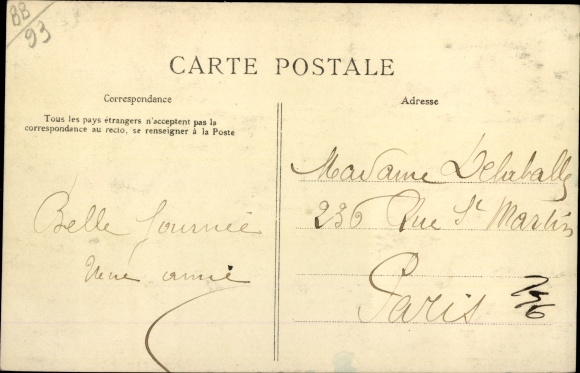 88
93
CARTE POSTALE
Correspondance
Tous les pays étrangers n'acceptent pas la
correspondance au recto, se renseigner à la Poste
Belle Journée
Une amie
Adresse
Madame Delaballe
236 Rue St Martin
Paris